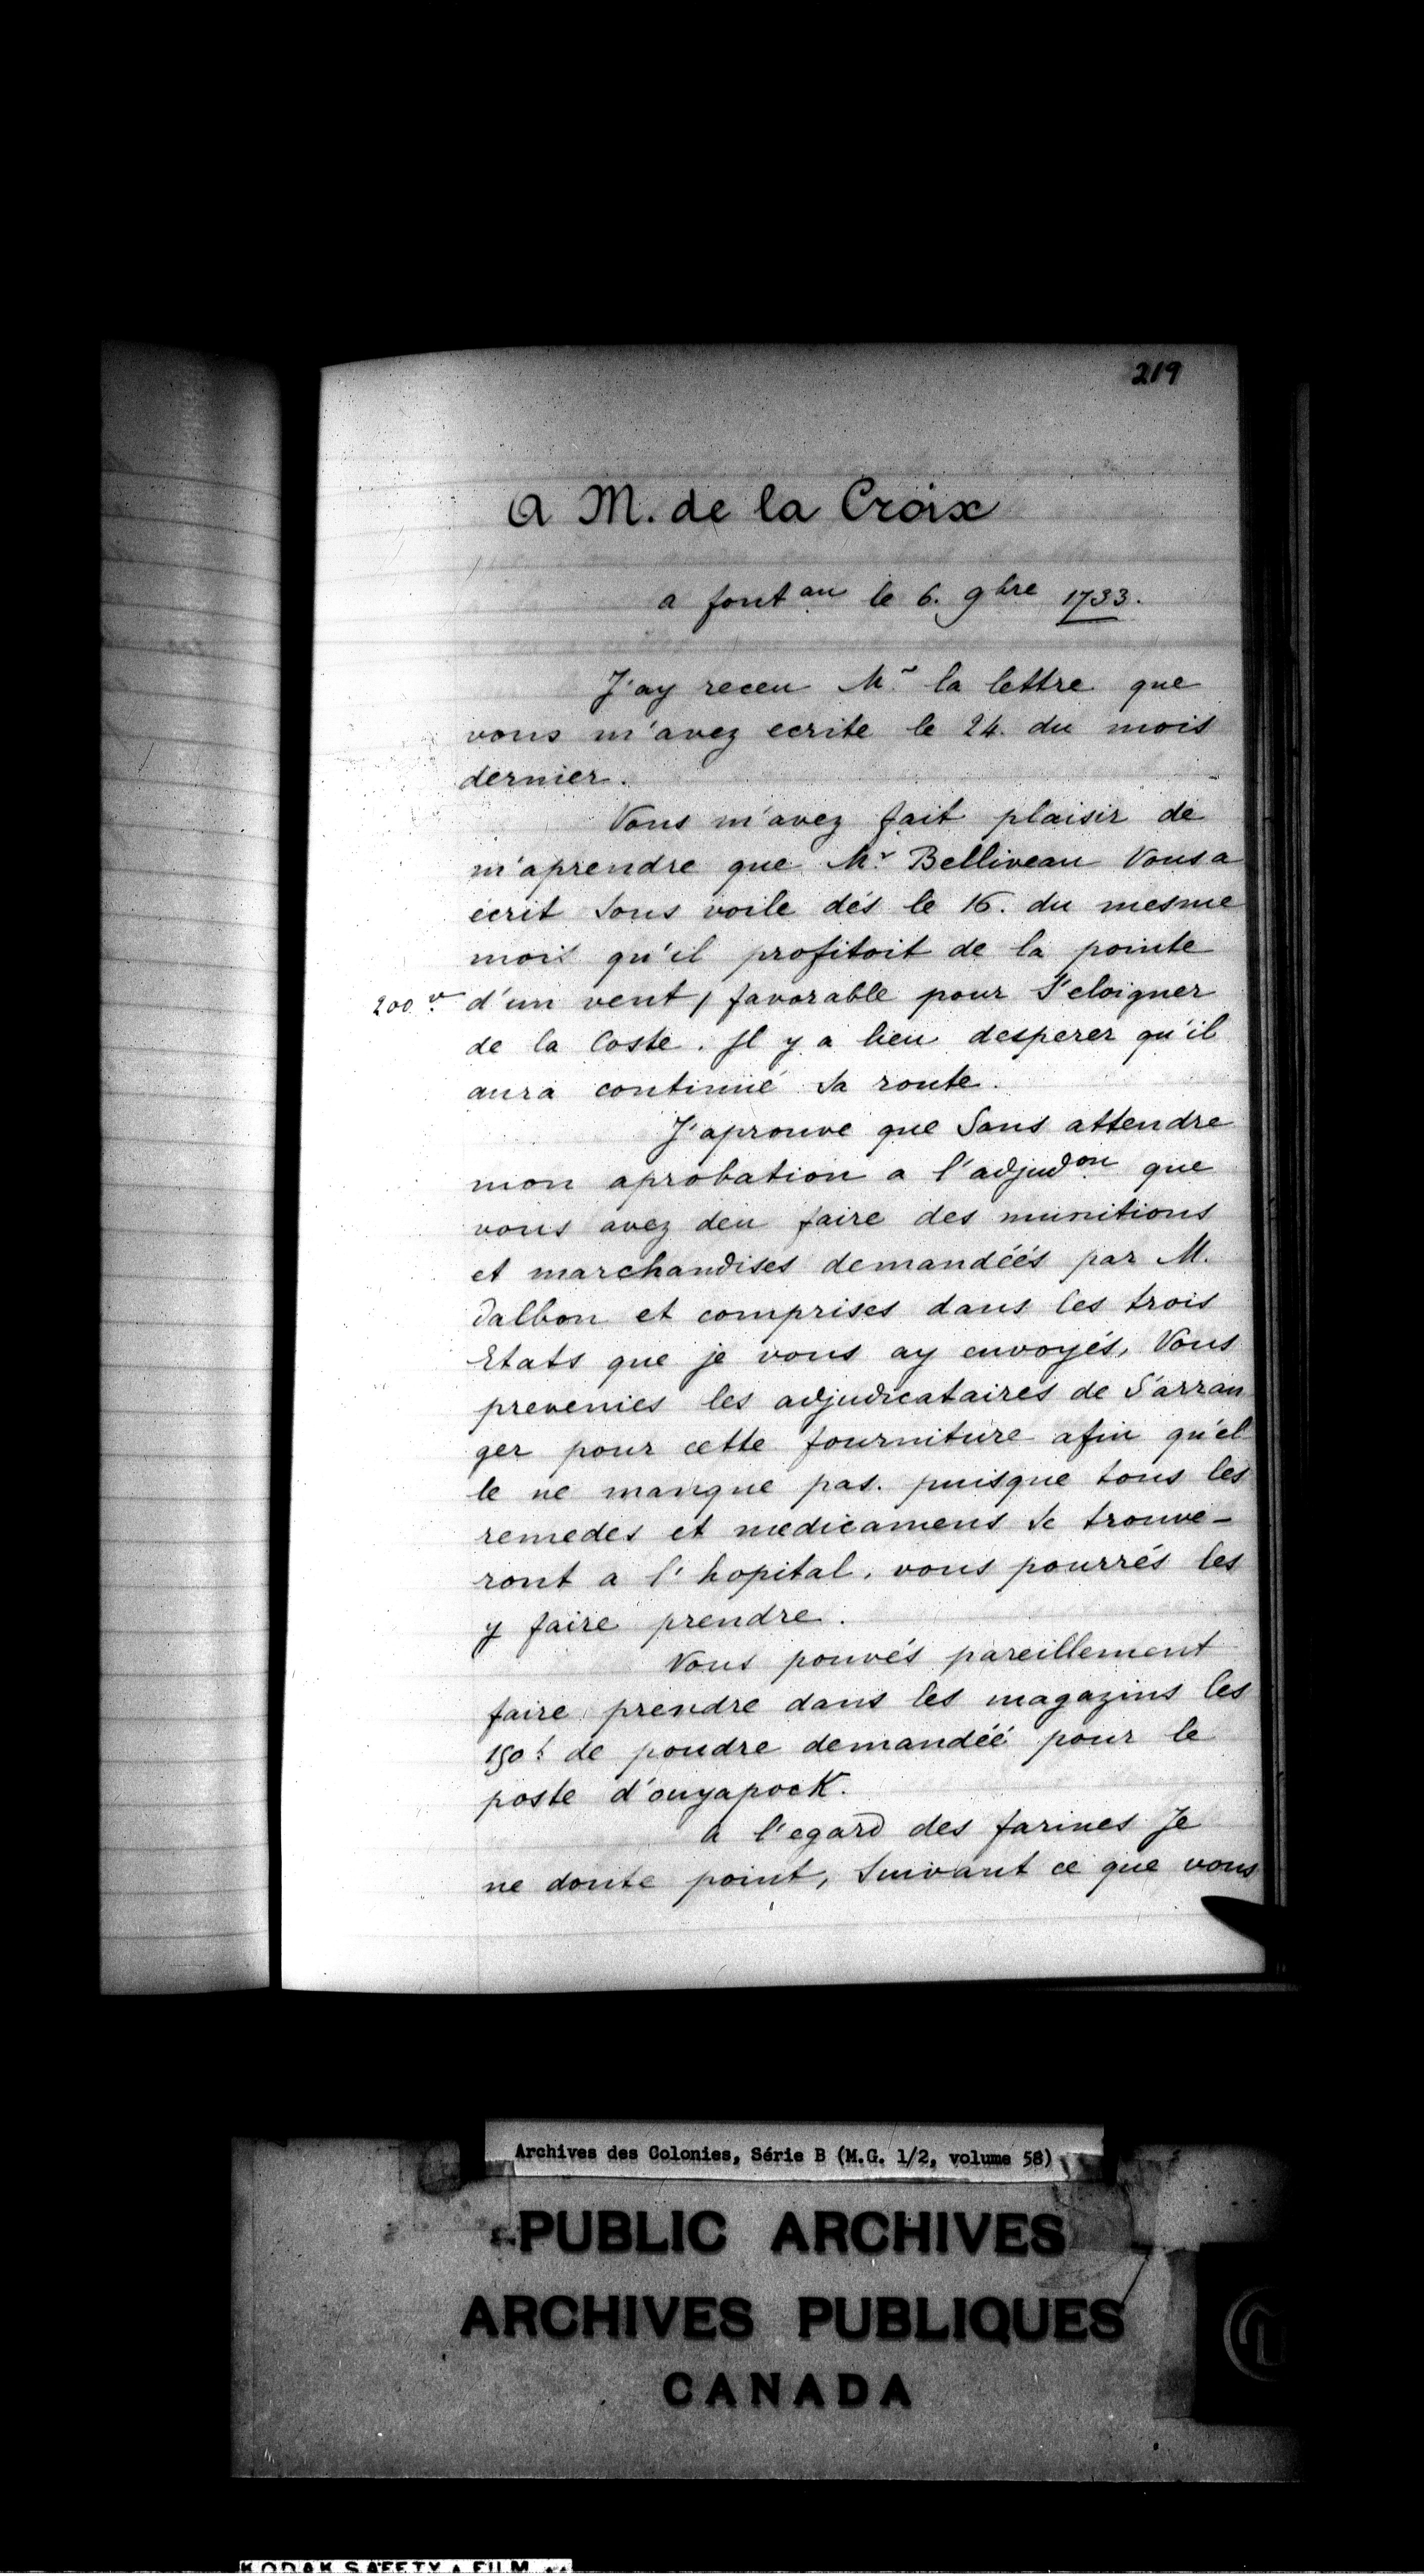 219
A M. de la Croix
a font.au le 6. 9bre 1733.
J'ay receu Mr la lettre que
vous m'avez ecrite le 24. du mois
dernier.
Vous m'avez fait plaisir de
m'aprendre que Mr Belliveau Vous a
écrit Sous voile dés le 16. du mesme
mois qu'il profitoit de la pointe
200 vo d'un vent / favorable pour S'eloigner
de la Coste. Il y a lieu desperer qu'il
aura continué Sa route.
J'aprouve que Sans attendre
mon aprobation a l'adjudon que
vous avez deu faire des munitions
et marchandises demandéés par M.
Dalbon et comprises dans les trois
Etats que je vous ay envoyés, Vous
prevenies les adjudicataires de S'arran
ger pour cette fourniture afin qu'el
le ne manque pas. puisque tous les
remedes et medicamens Se trouve-
ront a l'hopital, vous pourrés les
y faire prendre.
Vous pouvés pareillement
faire prendre dans les magazins les
150 l. de poudre demandéé pour le
poste d'ouyapocK.
a l'egard des farines Je
ne doute point, Suivant ce que vous
Archives des Colonies, Série B (M.G. 1/2, volume 58)
PUBLIC ARCHIVES
ARCHIVES PUBLIQUES
CANADA
KODAK SAFETY FILM